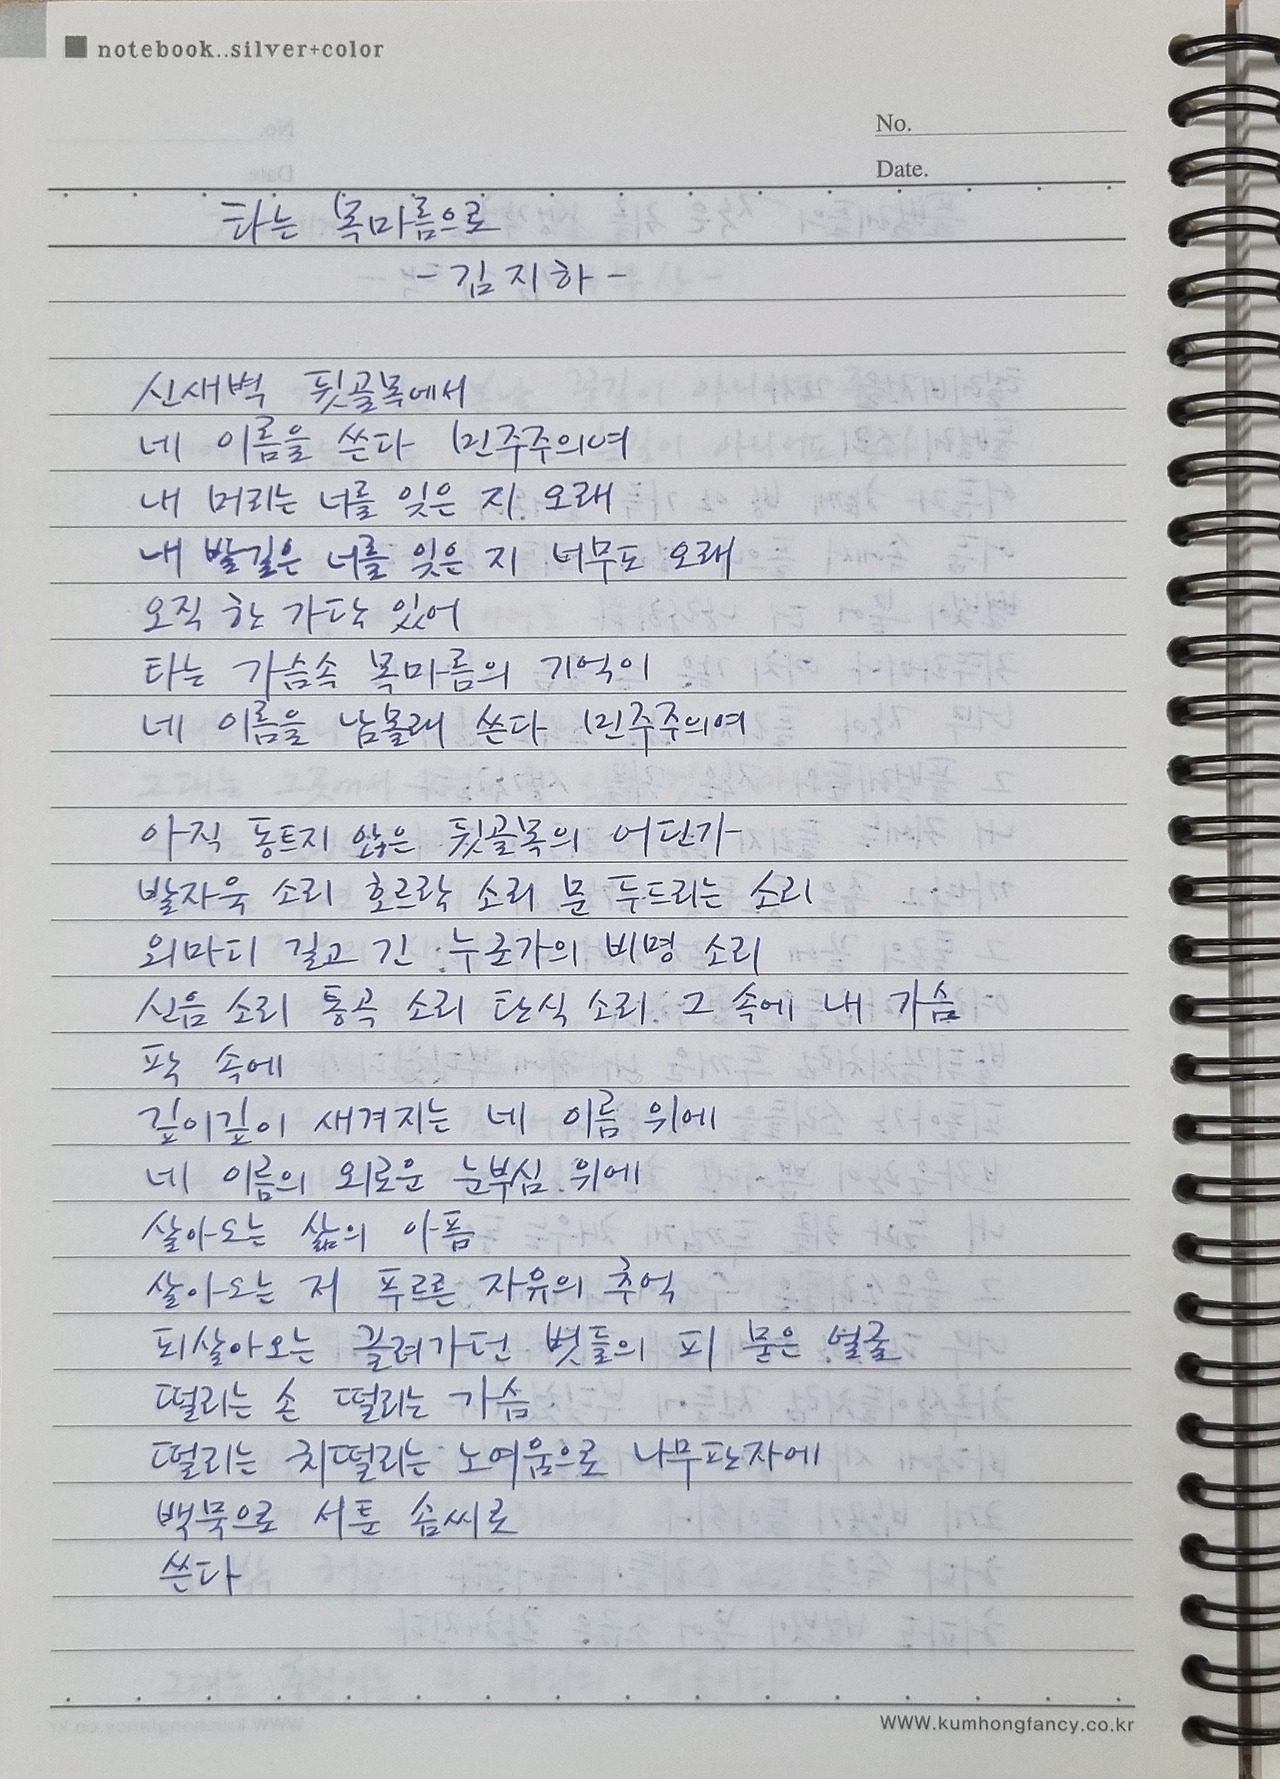 notebook..silver+color
No.
Date.
타는 목마름으로
- 김지하 -
신새벽 뒷골목에서
네 이름을 쓴다 민주주의여
내 머리는 너를 잊은 지 오래
내 발길은 너를 잊은 지 너무도 오래
오직 한 가닥 있어
타는 가슴속 목마름의 기억이
네 이름을 남몰래 쓴다 민주주의여
아직 동트지 않은 뒷골목의 어딘가
발자욱 소리 호르락 소리 문 두드리는 소리
외마디 길고 긴 누군가의 비명 소리
신음 소리 통곡 소리 탄식 소리 그 속에 내 가슴
팍 속에
깊이깊이 새겨지는 네 이름 위에
네 이름의 외로운 눈부심 위에
살아오는 삶의 아픔
살아오는 저 푸르른 자유의 추억
되살아오는 끌려가던 벗들의 피 묻은 얼굴
떨리는 손 떨리는 가슴
떨리는 치떨리는 노여움으로 나무판자에
백묵으로 서툰 솜씨로
쓴다
WWW.kumhongfancy.co.kr